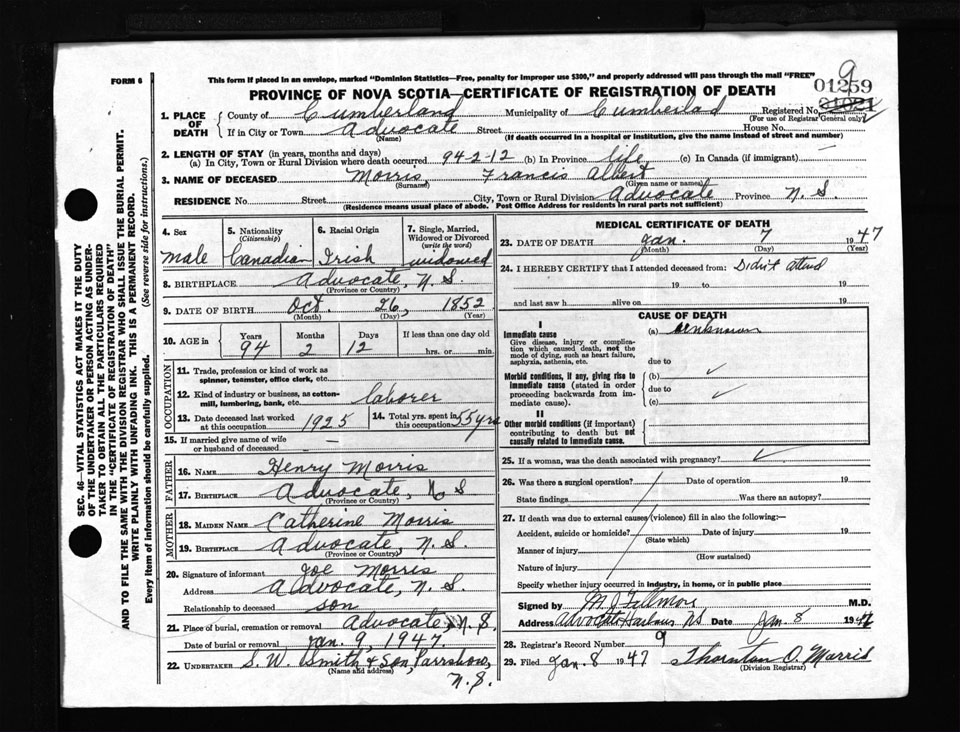 FORM 6
This form if placed in an envelope, marked "Dominion Statistics—Free, penalty for improper use $300," and properly addressed will pass through the mail "FREE"
PROVINCE OF NOVA SCOTIA—CERTIFICATE OF REGISTRATION OF DEATH
9
01259
Registered No.
(For use of Registrar General only)
1. PLACE OF DEATH
County of Cumberland Municipality of Cumberlad
If in City or Town Advocate Street House No.
(Name) (If death occurred in a hospital or institution, give the name instead of street and number)
2. LENGTH OF STAY (in years, months and days)
(a) In City, Town or Rural Division where death occurred 94-2-12 (b) In Province life (c) In Canada (if immigrant) —
3. NAME OF DECEASED Morris, Francis Albert
(Surname) (Given name or names)
RESIDENCE No. Street City, Town or Rural Division Advocate Province N.S.
(Residence means usual place of abode. Post Office Address for residents in rural parts not sufficient)
4. Sex Male
5. Nationality (Citizenship) Canadian
6. Racial Origin Irish
7. Single, Married, Widowed or Divorced (write the word) widowed
8. BIRTHPLACE Advocate, N.S.
(Province or Country)
9. DATE OF BIRTH Oct. 26, 1852
(Month) (Day) (Year)
10. AGE in Years Months Days If less than one day old
94 2 12 hrs. or min.
OCCUPATION
11. Trade, profession or kind of work as spinner, teamster, office clerk, etc.
12. Kind of industry or business, as cotton-mill, lumbering, bank, etc. laborer
13. Date deceased last worked at this occupation 1925
14. Total yrs. spent in this occupation 55 yrs
15. If married give name of wife or husband of deceased —
FATHER
16. NAME Henry Morris
17. BIRTHPLACE Advocate, N S
(Province or Country)
MOTHER
18. MAIDEN NAME Catherine Morris
19. BIRTHPLACE Advocate, N.S.
(Province or Country)
20. Signature of informant Joe Morris
Address Advocate, N.S.
Relationship to deceased son
21. Place of burial, cremation or removal Advocate, N.S.
Date of burial or removal Jan. 9, 1947
22. UNDERTAKER S. W. Smith & Son, Parrsboro,
(Name and address)
N.S.
MEDICAL CERTIFICATE OF DEATH
23. DATE OF DEATH Jan. 7 1947
(Month) (Day) (Year)
24. I HEREBY CERTIFY that I attended deceased from: Didn't attend
19 to 19
and last saw h alive on 19
CAUSE OF DEATH
I
Immediate cause
Give disease, injury or complication which caused death, not the mode of dying, such as heart failure, asphyxia, asthenia, etc.
(a) unknown
due to
Morbid conditions, if any, giving rise to immediate cause (stated in order proceeding backwards from immediate cause).
(b) ✓
due to
(c) ✓
II
Other morbid conditions (if important) contributing to death but not causally related to immediate cause.
25. If a woman, was the death associated with pregnancy? ✓
26. Was there a surgical operation? Date of operation 19
State findings Was there an autopsy?
27. If death was due to external causes (violence) fill in also the following:—
Accident, suicide or homicide? Date of injury 19
(State which)
Manner of injury
(How sustained)
Nature of injury
Specify whether injury occurred in industry, in home, or in public place
Signed by M. J. Fillmore M.D.
Address Advocate Harbour NS Date Jan. 8 194
28. Registrar's Record Number 9
29. Filed Jan. 8 1947 Thornton O. Morris
(Division Registrar)
SEC. 46—VITAL STATISTICS ACT MAKES IT THE DUTY
OF THE UNDERTAKER OR PERSON ACTING AS UNDER-
TAKER TO OBTAIN ALL THE PARTICULARS REQUIRED
IN THE "CERTIFICATE OF REGISTRATION OF DEATH"
AND TO FILE THE SAME WITH THE DIVISION REGISTRAR WHO SHALL ISSUE THE BURIAL PERMIT.
WRITE PLAINLY WITH UNFADING INK. THIS IS A PERMANENT RECORD.
Every item of information should be carefully supplied. (See reverse side for instructions.)